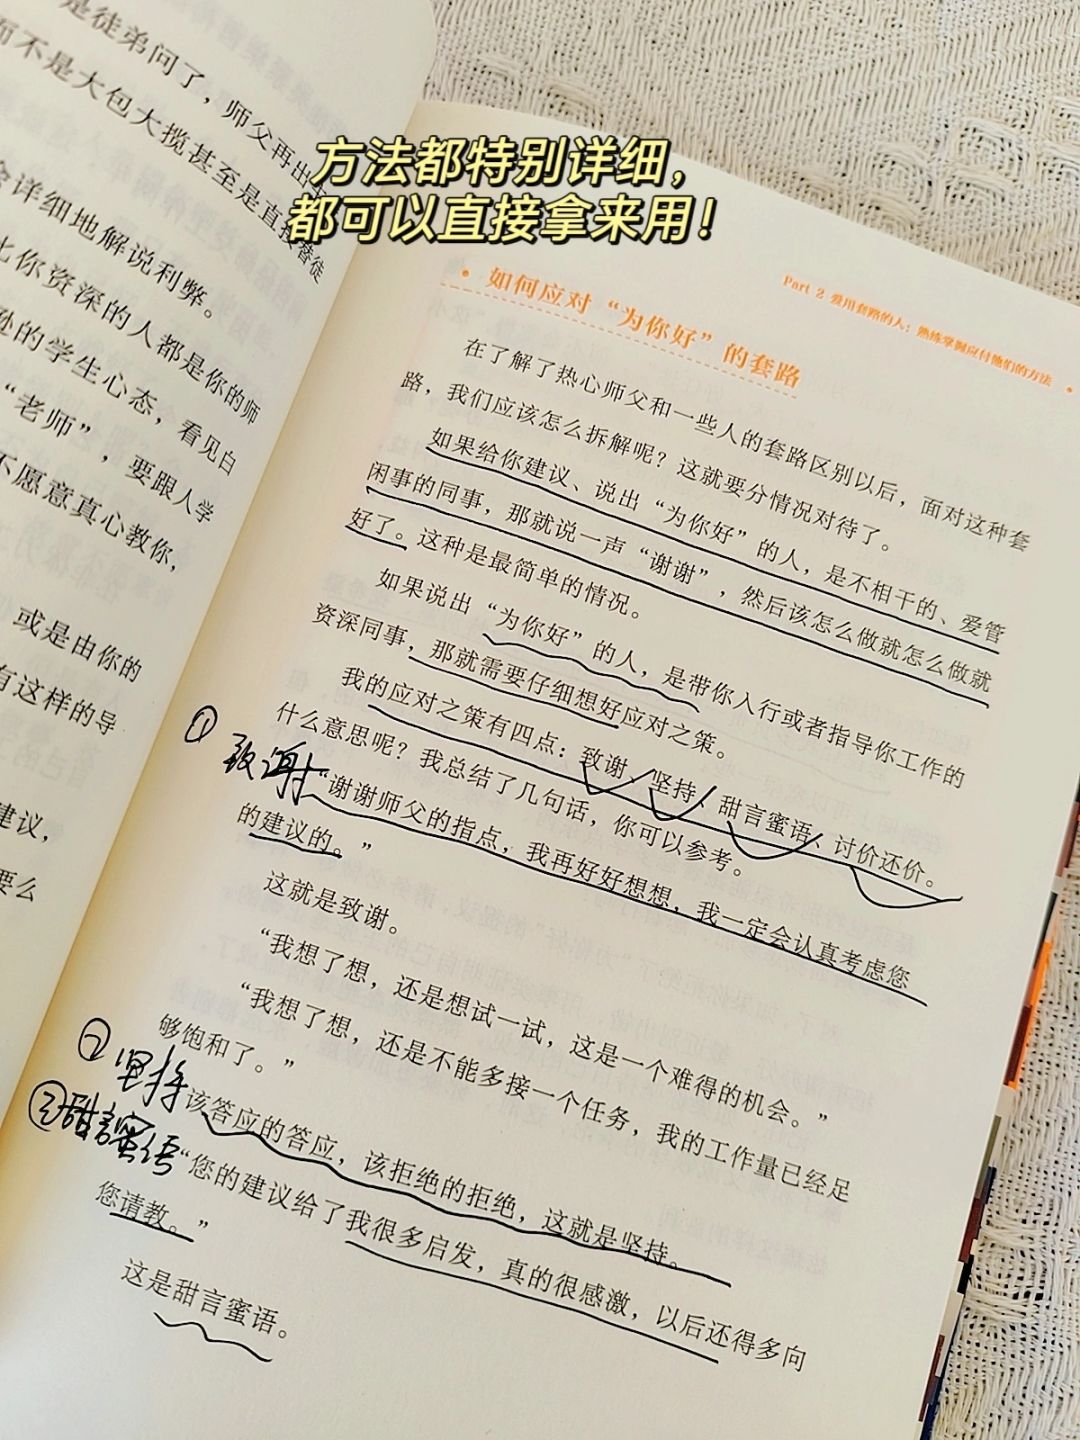 方法都特别详细，
都可以直接拿来用！
是徒弟问了，师父再出
而不是大包大揽甚至是直接替徒
会详细地解说利弊。
比你资深的人都是你的师
的学生心态，看见白
“老师”，要跟人学
不愿意真心教你，
或是由你的
有这样的导
建议，
要么
Part 2 爱用套路的人：熟练掌握应付他们的方法
·如何应对“为你好”的套路
在了解了热心师父和一些人的套路区别以后，面对这种套
路，我们应该怎么拆解呢？这就要分情况对待了。
如果给你建议、说出“为你好”的人，是不相干的、爱管
闲事的同事，那就说一声“谢谢”，然后该怎么做就怎么做就
好了。这种是最简单的情况。
如果说出“为你好”的人，是带你入行或者指导你工作的
资深同事，那就需要仔细想好应对之策。
我的应对之策有四点：致谢、坚持、甜言蜜语、讨价还价。
什么意思呢？我总结了几句话，你可以参考。
① 致谢
“谢谢师父的指点，我再好好想想，我一定会认真考虑您
的建议的。”
这就是致谢。
“我想了想，还是想试一试，这是一个难得的机会。”
“我想了想，还是不能多接一个任务，我的工作量已经足
够饱和了。”
② 坚持
该答应的答应，该拒绝的拒绝，这就是坚持。
③ 甜言蜜语
“您的建议给了我很多启发，真的很感激，以后还得多向
您请教。”
这是甜言蜜语。